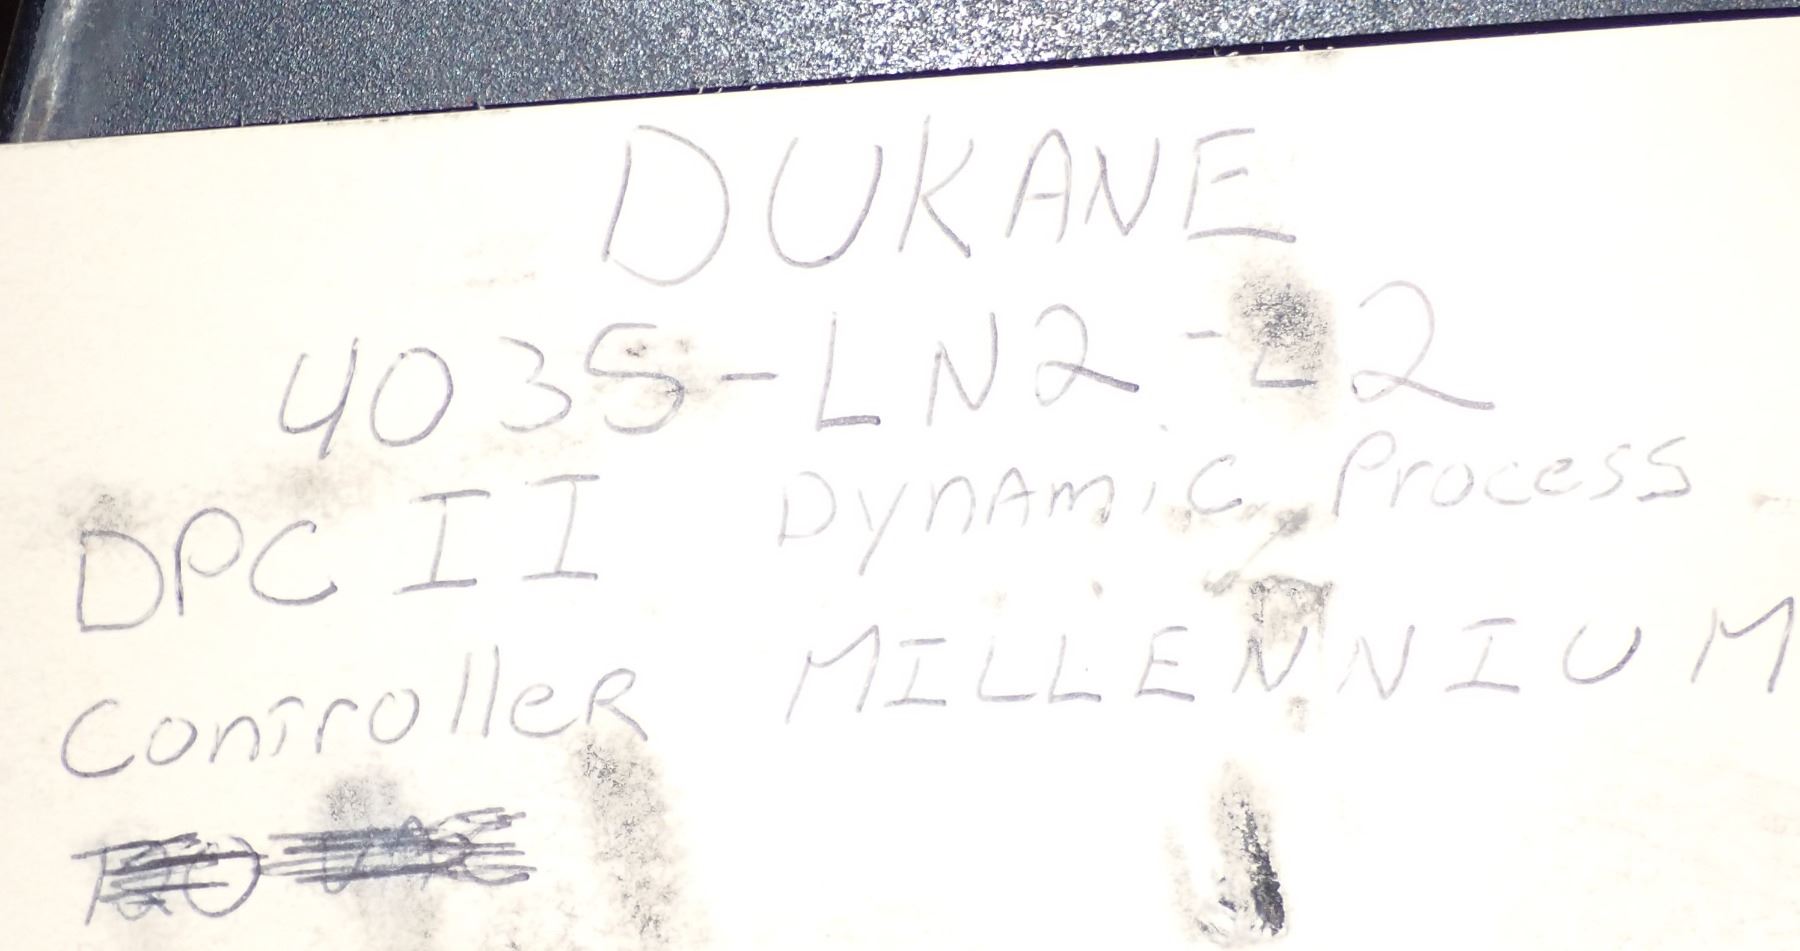 DUKANE
4035-LN2-L2
DPC II Dynamic Process
Controller MILLENNIUM